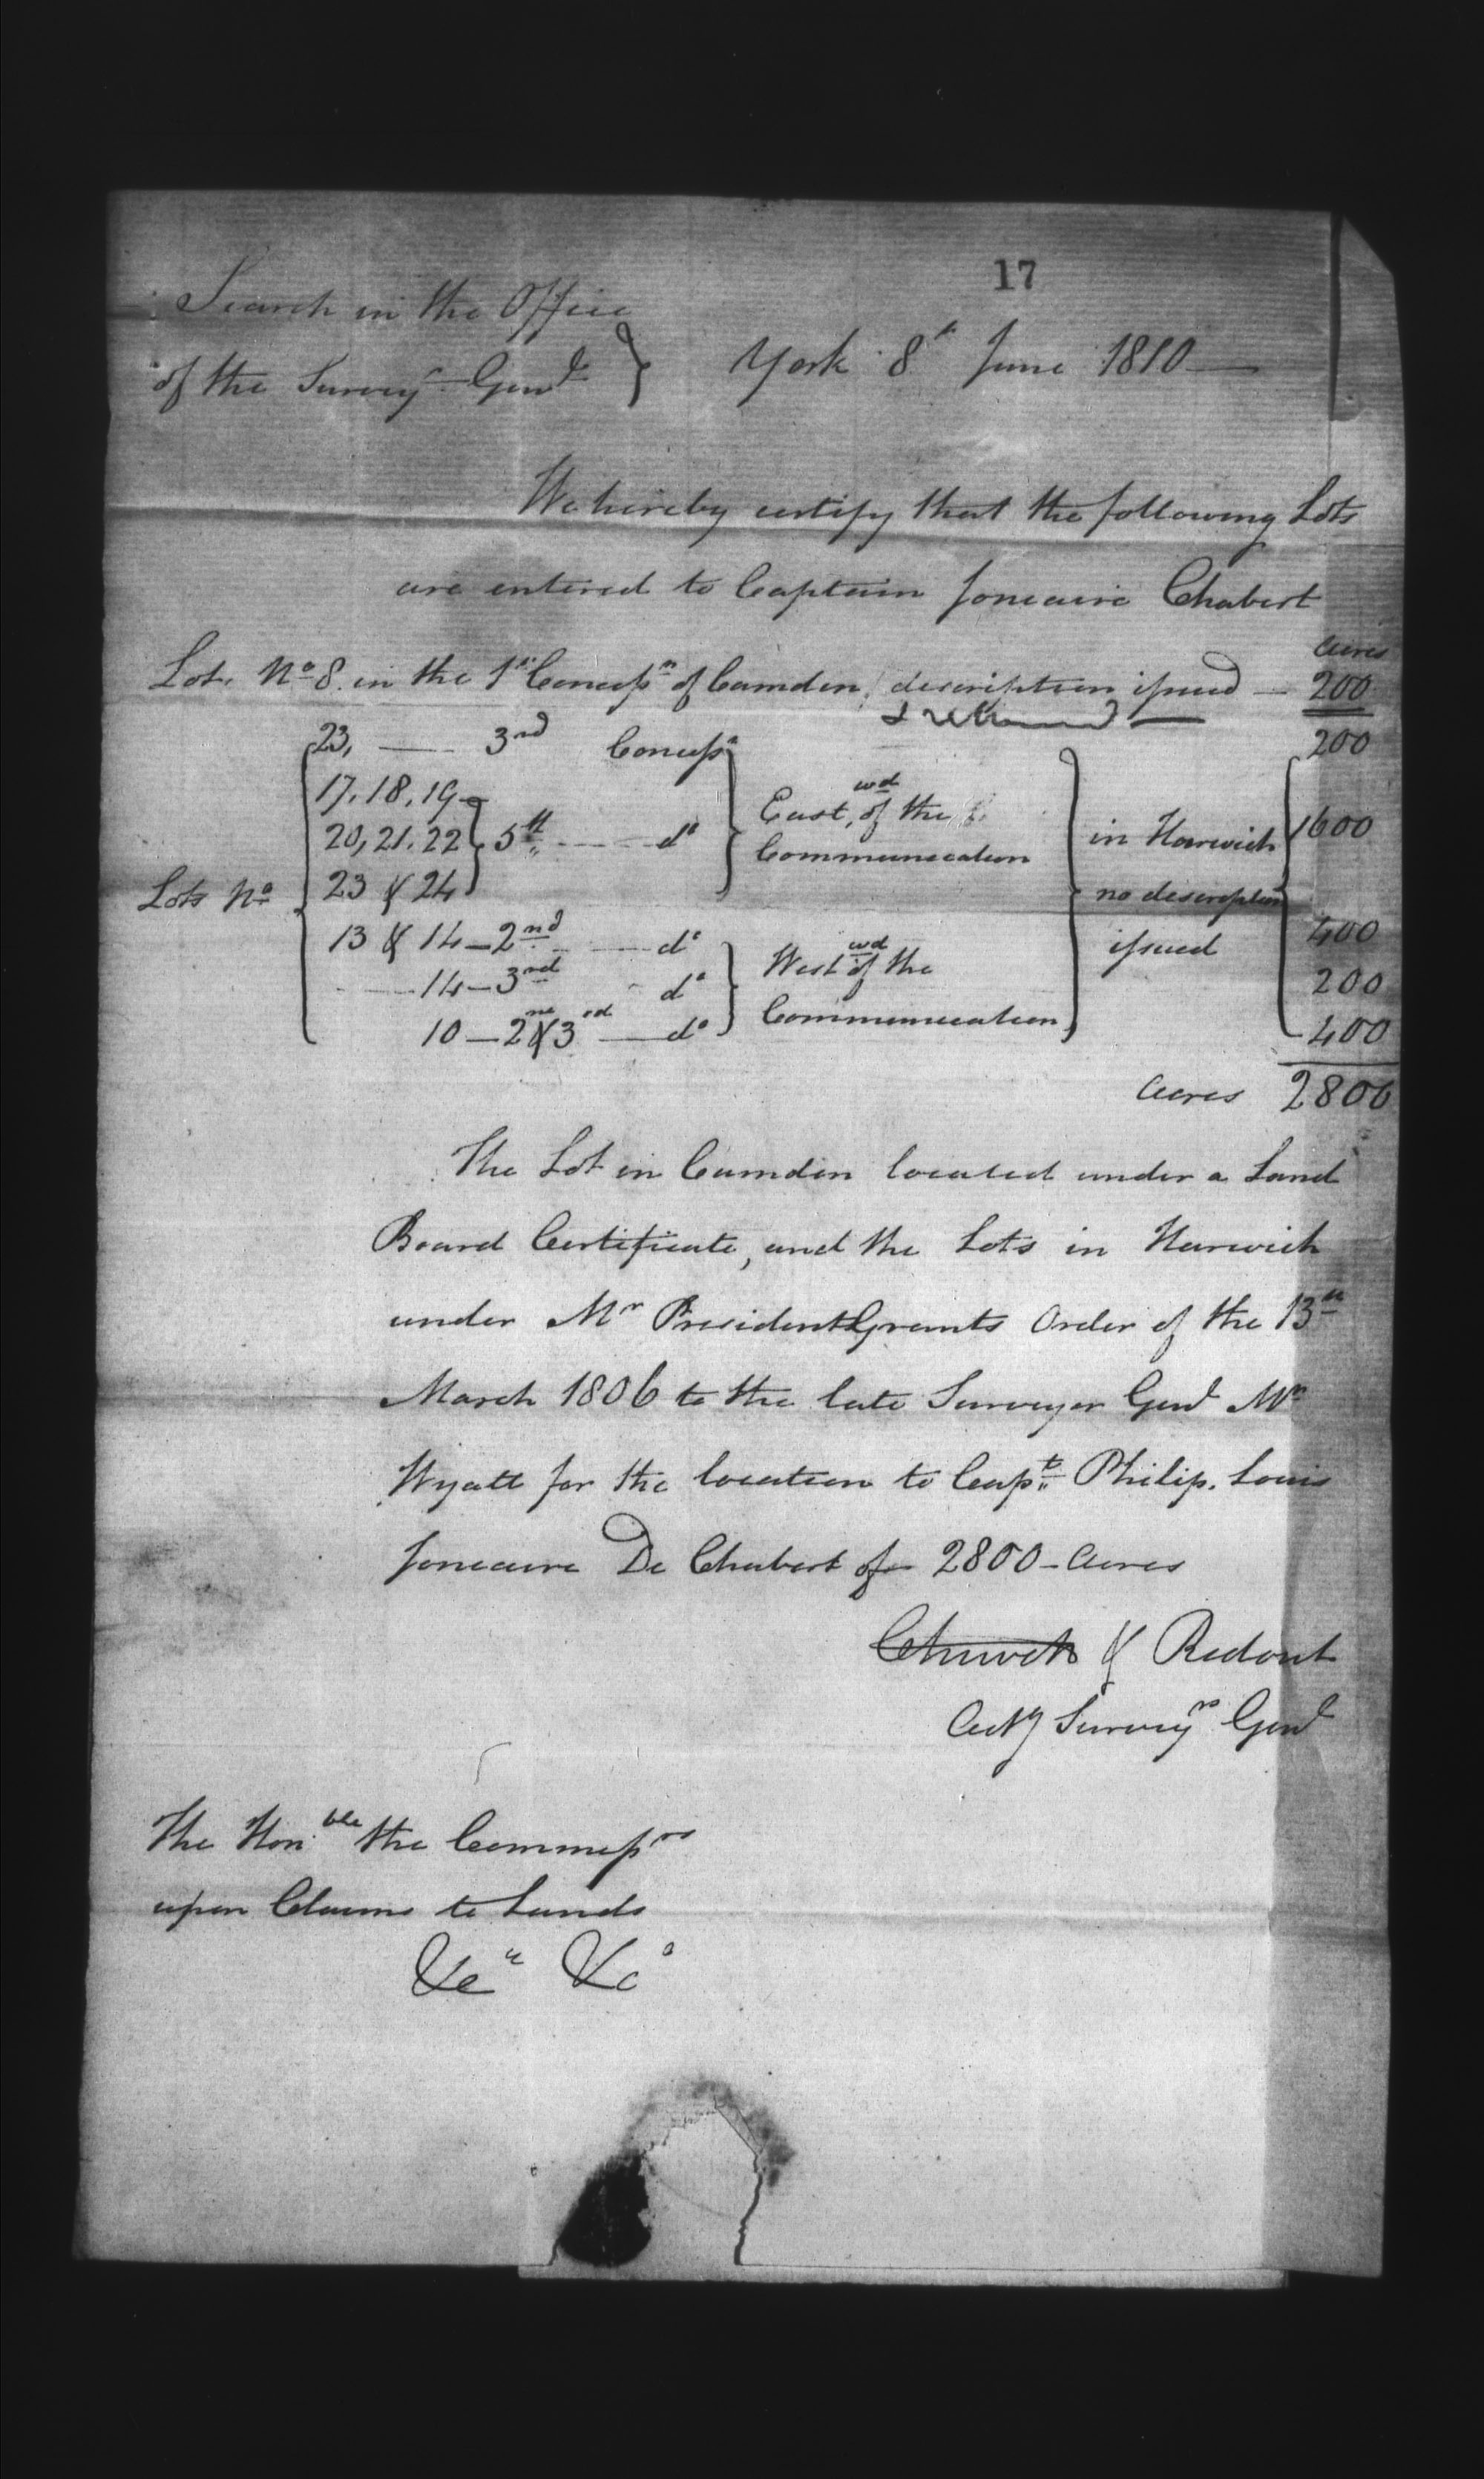 17
Search in the Office
of the Survey.r Gen.l } York 8th June 1810 —
We hereby certify that the following Lots
are entered to Captain Joncaire Chabert
acres
Lot. No 8. in the 1st Concessn of Camden, description issued — 200
& returned —
23, — 3rd Concessn 200
17. 18. 19
20, 21. 22 } 5th — do Eastwd of the Communication in Harwich 1600
Lots No 23 & 24 no description
13 & 14 — 2nd — do issued 400
— 14 — 3rd do Westwd of the 200
10 — 2nd & 3rd — do Communication 400
acres 2800
The Lot in Camden located under a Land
Board Certificate, and the Lots in Harwich
under Mr President Grants Order of the 13th
March 1806 to the late Surveyor Genl Mr
Wyatt for the location to Capt. Philip. Louis
Joncaire De Chabert for 2800 - Acres
Chewett & Ridout
Actg Surveyrs Genl
The Honble the Commissrs
upon Claims to Lands
&ca &ca